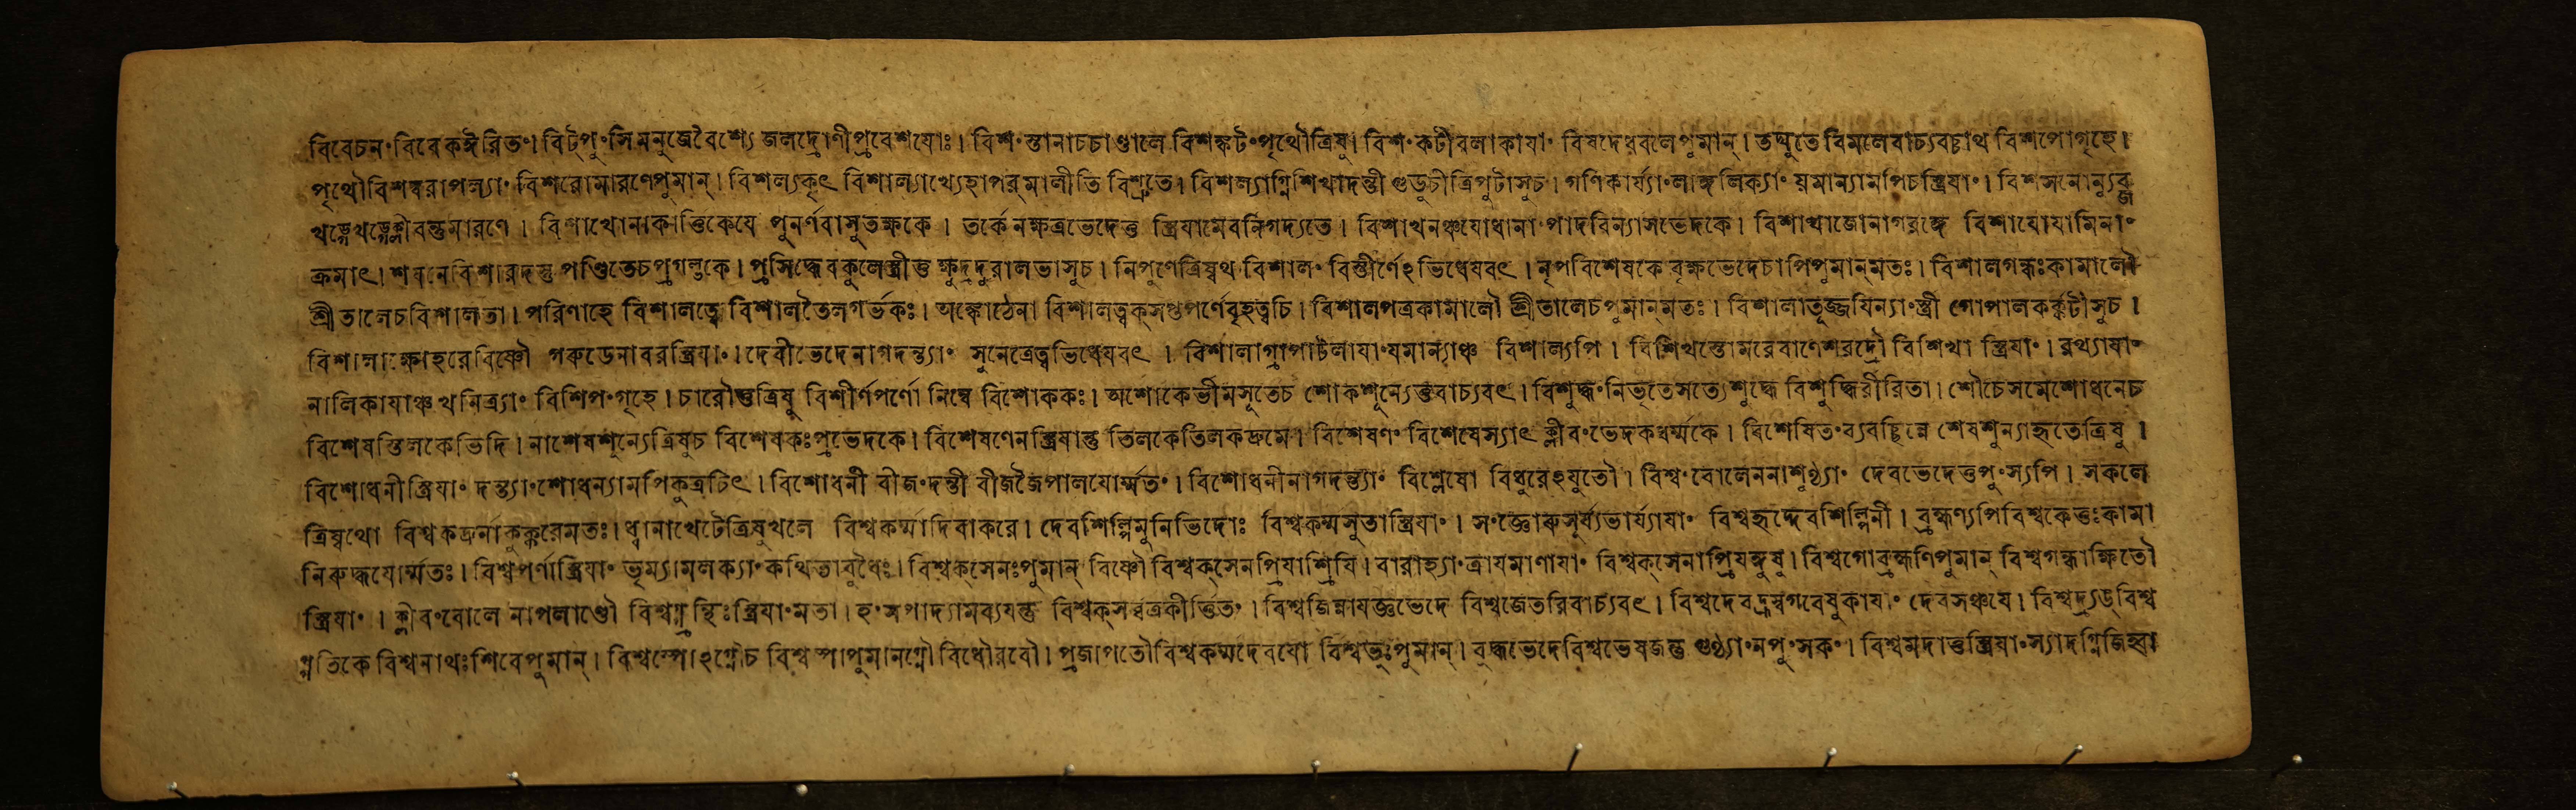 বিবেচনং বিবেকঈরিতং। বিট্পুংসি মনুজেবৈশ্যে জলদ্রোণীপ্রবেশযোঃ। বিশংস্তানাচচাণ্ডালে বিশঙ্কটংপৃথৌত্রিষু। বিশংকটীবলাকাযাং বিষদেধবলেপুমান্। তদ্যুতে বিমলেবাচ্যবচ্চাথ বিশপোগৃহে।
পৃথৌবিশম্বরাপল্ল্যাং বিশরোমারণেপুমান্। বিশল্যকৃৎ বিশাল্যাখ্যেহাপর্মালীতি বিশ্রুতে। বিশল্যাগ্নিশিখাদন্তী গুডুচীত্রিপুটাসুচ। গণিকার্য্যাং লাঙ্গলিক্যাং য়মান্যামপিচস্ত্রিযাং। বিশসনোন্যূব্জ
খড্গেখড্গেক্লীবন্তুমারণে। বিশাখোনাকার্ত্তিকেযে পুনর্ণবাসুতক্ষকে। তর্কেনক্ষত্রভেদেতু স্ত্রিযামেবনিগদ্যতে। বিশাখনঞ্চযোধানাং পাদবিন্যাসভেদকে। বিশাখাজোনাগরঙ্গে বিশাযোযামিনাং
ক্রমাৎ। শবনেবিশারদস্তু পণ্ডিতেচপ্রগল্ভকে। প্রসিদ্ধেবকুলেস্ত্রীতু ক্ষুদ্রদুরালভাসুচ। নিপুণেত্রিষ্বথ বিশালং বিস্তীর্ণেঽভিধেষবৎ। নৃপবিশেষকে বৃক্ষভেদেচাপিপুমান্মতঃ। বিশালগন্ধঃকামালৌ
শ্রীতালেচবিশালতা। পরিণাহে বিশালত্বে বিশালতৈলগর্ভকঃ। অঙ্কোঠেনা বিশালত্বক্সপ্তপর্ণেবৃহত্বচি। বিশালপত্রকামালৌ শ্রীতালেচপুমান্মতঃ। বিশালাতূজ্জযিন্যাংস্ত্রী গোপালকর্ক্কটীসুচ।
বিশালাক্ষোহরেবিষ্ণৌ গরুডেনাবরস্ত্রিযাং। দেবীভেদেনাগদন্ত্যাং সুনেত্রেত্বভিধেযবৎ। বিশালাগ্রাপাটলাযাংযমান্যাঞ্চ বিশাল্যপি। বিশিখস্তোমরেবাণেশরদ্রৌ বিশিখা স্ত্রিযাং। রথ্যাযাং
নালিকাযাঞ্চ খনিত্র্যাং বিশিপংগৃহে। চারৌস্তুত্রিষু বিশীর্ণপর্ণো নিম্বে বিশোককঃ। অশোকের্ভীমসূতেচ শোকশূন্যেতুবাচ্যবৎ। বিশুদ্ধংনিভৃতেসত্যেশুদ্ধে বিশুদ্ধিরীরিতা। শৌচেসমেশোধনেচ
বিশেষস্তিলকেভিদি। নাশেষশূন্যেত্রিষুচ বিশেষকঃপ্রভেদকে। বিশেষণেনস্ত্রিযান্তু তিলকেতিলকদ্রুমে। বিশেষণং বিশেষ্যেস্যাৎ ক্লীবংভেদকধর্ম্মকে। বিশেষিতংব্যবচ্ছিন্নে শেষশূন্যাহৃতেত্রিষু।
বিশোধনীস্ত্রিযাং দন্ত্যাংশোধন্যামপিকুত্রচিৎ। বিশোধনী বীজংদন্তী বীজজৈপালযোর্ম্মতং। বিশোধনীনাগদন্ত্যাং বিশ্লেষো বিধুরেঽযুতৌ। বিশ্বংবোলেননাশুণ্ঠ্যাং দেবভেদেতুপুংস্যপি। সকলে
ত্রিষ্বথো বিশ্বকদ্রুর্নাকুক্কুরেমতঃ। ধ্বানাখেটেত্রিষুখলে বিশ্বকর্ম্মাদিবাকরে। দেবশিল্পিমুনিভিদোঃ বিশ্বকর্ম্মসুতাস্ত্রিযাং। সংজ্ঞোরুসূর্য্যভার্য্যাযাং বিশ্বহৃদ্দেবশিল্পিনী। ব্রহ্মণ্যপিবিশ্বকেতুঃকামা
নিরুদ্ধযোর্ম্মতঃ। বিশ্বপর্ণীস্ত্রিযাং ভূম্যামলক্যাংকথিতাবুধৈঃ। বিশ্বক্সেনঃপুমান্ বিষ্ণৌ বিশ্বক্সেনপ্রিযাশ্রিযি। বারাহ্যাংত্রাযমাণাযাং বিশ্বক্সেনাপ্রিযঙ্গুষু। বিশ্বগোব্রহ্মণিপুমান্ বিশ্বগন্ধাক্ষিতৌ
স্ত্রিযাং। ক্লীবংবোলে নাপলাণ্ডৌ বিশ্বগ্রন্থিঃস্ত্রিযাংমতা। হংসপাদ্যামব্যযন্তু বিশ্বক্সর্ব্বত্রকীর্ত্তিতং। বিশ্বজিন্নাযজ্ঞভেদে বিশ্বজেতরিবাচ্যবৎ। বিশ্বদেবাহ্রস্বগবেধুকাযাং দেবসঞ্চযে। বিশ্বদ্র্যঙ্বিশ্ব
গ্গতিকে বিশ্বনাথঃশিবেপুমান্। বিশ্বপ্সোঽগ্নৌচ বিশ্বপ্সাপুমানগ্নৌ বিধৌরবৌ। প্রজাগতৌবিশ্বকর্ম্মদেবযো র্বিশ্বভূঃপুমান্। বুদ্ধভেদেবিশ্বভেষজন্তু শুণ্ঠ্যাংনপুংসকং। বিশ্বমদাতুস্ত্রিযাংস্যাদগ্নিজিহ্বা